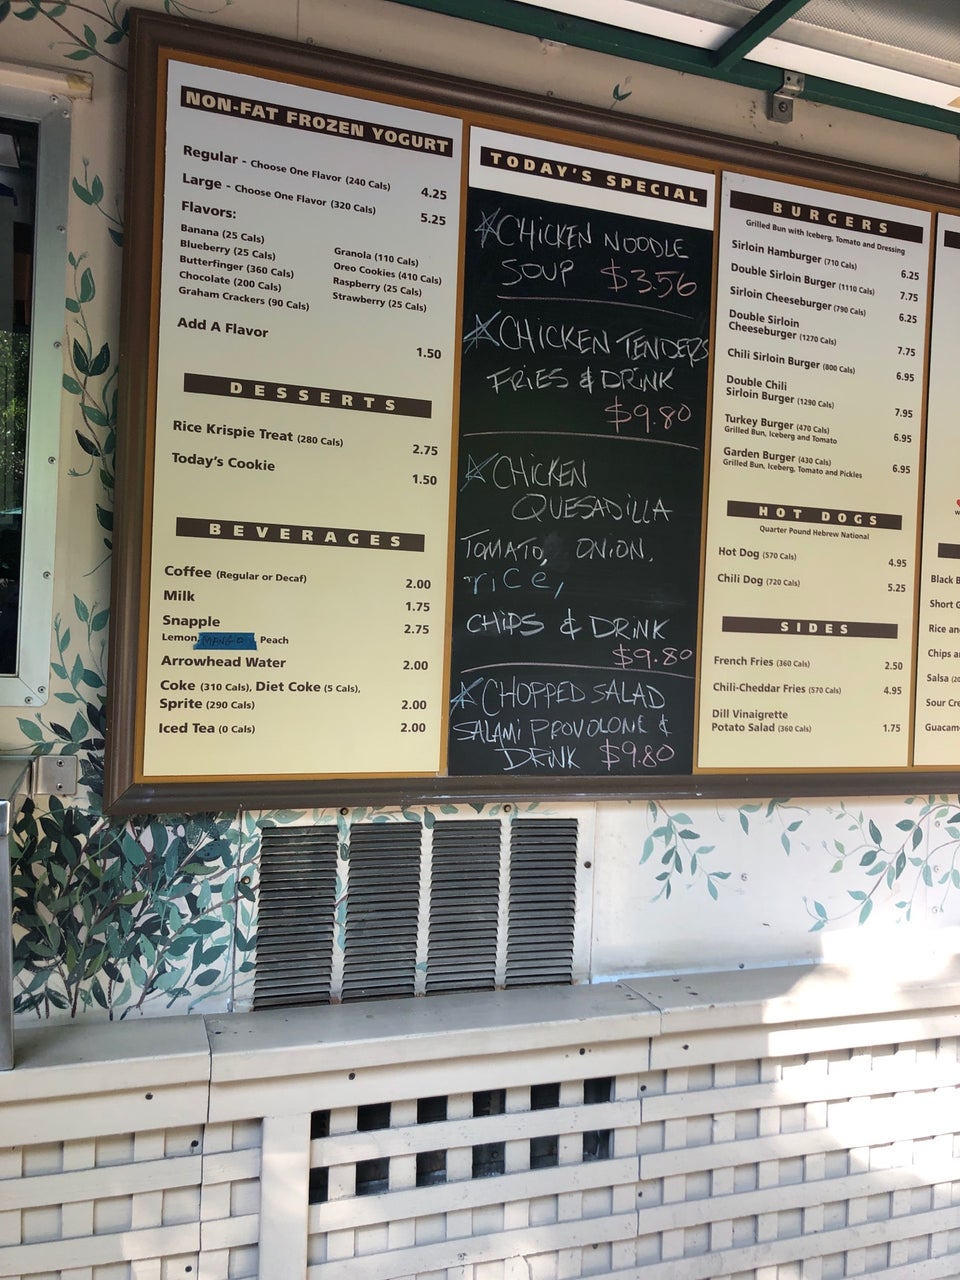 NON-FAT FROZEN YOGURT
Regular - Choose One Flavor (240 Cals) 4.25
Large - Choose One Flavor (320 Cals) 5.25
Flavors:
Banana (25 Cals)
Blueberry (25 Cals)
Butterfinger (360 Cals)
Chocolate (200 Cals)
Graham Crackers (90 Cals)
Granola (110 Cals)
Oreo Cookies (410 Cals)
Raspberry (25 Cals)
Strawberry (25 Cals)
Add A Flavor 1.50
DESSERTS
Rice Krispie Treat (280 Cals) 2.75
Today's Cookie 1.50
BEVERAGES
Coffee (Regular or Decaf) 2.00
Milk 1.75
Snapple 2.75
Lemon, MANGO, Peach
Arrowhead Water 2.00
Coke (310 Cals), Diet Coke (5 Cals),
Sprite (290 Cals) 2.00
Iced Tea (0 Cals) 2.00
TODAY'S SPECIAL
CHICKEN NOODLE
SOUP $3.56
CHICKEN TENDERS
FRIES & DRINK
$9.80
CHICKEN
QUESADILLA
TOMATO, ONION,
rice,
CHIPS & DRINK
$9.80
CHOPPED SALAD
SALAMI PROVOLONE &
DRINK $9.80
BURGERS
Grilled Bun with Iceberg, Tomato and Dressing
Sirloin Hamburger (710 Cals) 6.25
Double Sirloin Burger (1110 Cals) 7.75
Sirloin Cheeseburger (790 Cals) 6.25
Double Sirloin
Cheeseburger (1270 Cals) 7.75
Chili Sirloin Burger (800 Cals) 6.95
Double Chili
Sirloin Burger (1290 Cals) 7.95
Turkey Burger (470 Cals) 6.95
Grilled Bun, Iceberg and Tomato
Garden Burger (430 Cals) 6.95
Grilled Bun, Iceberg, Tomato and Pickles
HOT DOGS
Quarter Pound Hebrew National
Hot Dog (570 Cals) 4.95
Chili Dog (720 Cals) 5.25
SIDES
French Fries (360 Cals) 2.50
Chili-Cheddar Fries (570 Cals) 4.95
Dill Vinaigrette
Potato Salad (360 Cals) 1.75
Black B
Short G
Rice an
Chips a
Salsa (20
Sour Cre
Guacam